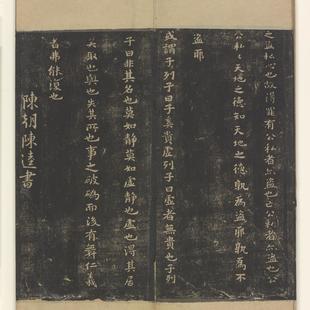 之盜私心也故得罪有公私者亦盜也亡公私者亦盜也公
公私私天地之德知天地之德孰為盜耶孰為不
盜耶
或謂子列子曰子奚貴虛列子曰虛者無貴也子列
子曰非其名也莫如靜莫如虛靜也虛也得其居
矣取也與也失其所也事之破䃣而後有舞仁義
者弗能復也
陳朝陳逵書